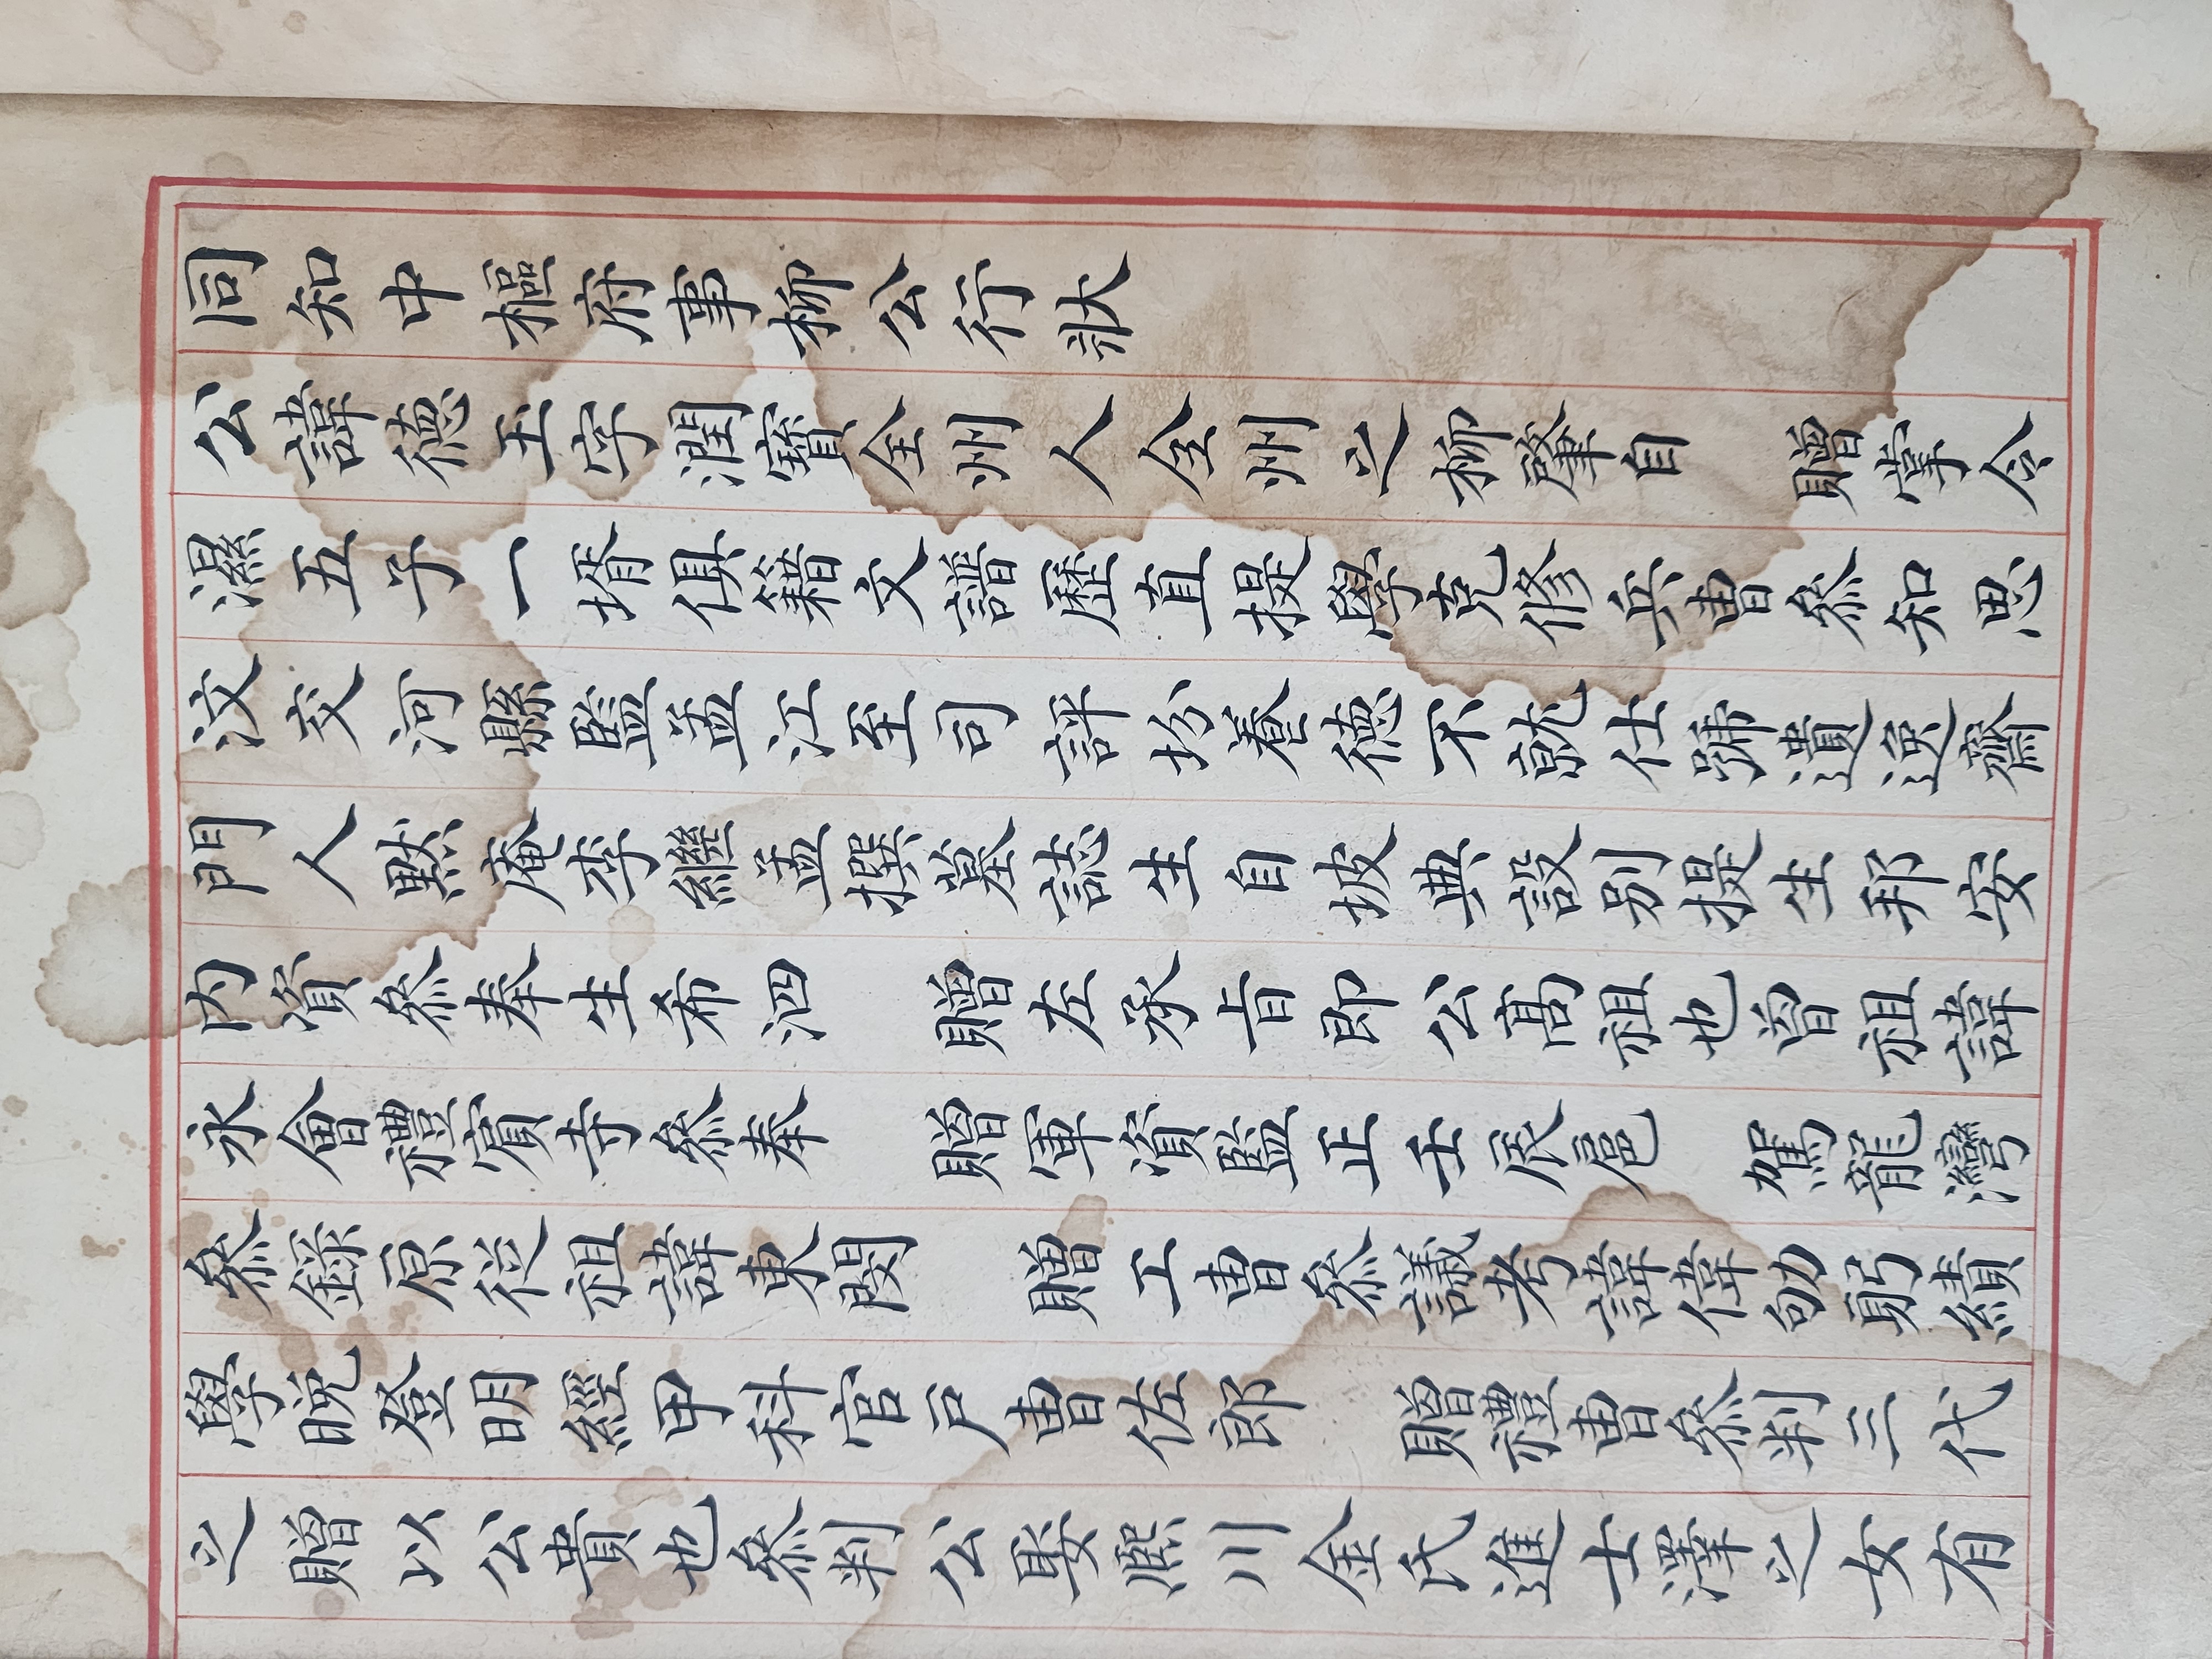 同知中樞府事柳公行狀
公諱德玉字潤寶全州人全州之柳肇自　贈掌令
濕五子一壻俱籍文譜歷直提學克修兵曹叅知思
汶交河縣監孟江至司評扮養德不就仕號遺逸齋
門人默庵李繼孟撰墓誌生自坡典設別提生邦安
內資叅奉生希泗　贈左承旨卽公高祖也曾祖諱
永會禮賓寺叅奉　贈軍資監正壬辰扈　駕龍灣
叅錄原從祖諱東閔　贈工曹叅議考諱偉劬躬績
學晩登明經甲科官戶曹佐郎　贈禮曹叅判三代
之贈以公貴也叅判公娶熙川金氏進士澤之女有